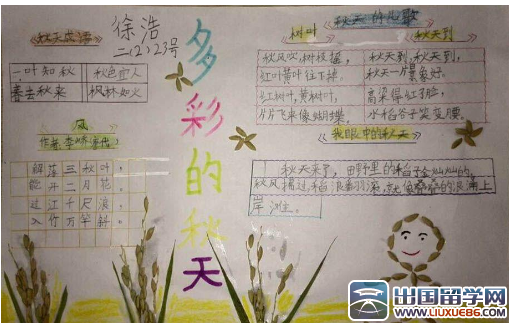 秋天成语
徐浩
二(2)23号
一叶知秋 秋色宜人
春去秋来 枫林如火
风
作者:李峤(唐代)
解落三秋叶,
能开二月花,
过江千尺浪,
入竹万竿斜。
多彩的秋天
秋天的儿歌
树叶
秋风吹,树枝摇,
红叶黄叶往下掉。
红树叶,黄树叶,
片片飞来像蝴蝶。
秋天到
秋天到,秋天到,
秋天一片景象好。
高粱得红了脸,
水稻谷子笑弯腰。
我眼中的秋天
秋天来了,田野里的稻子金灿灿的,
秋风
出国留学网
WWW.LIUXUE86.COM